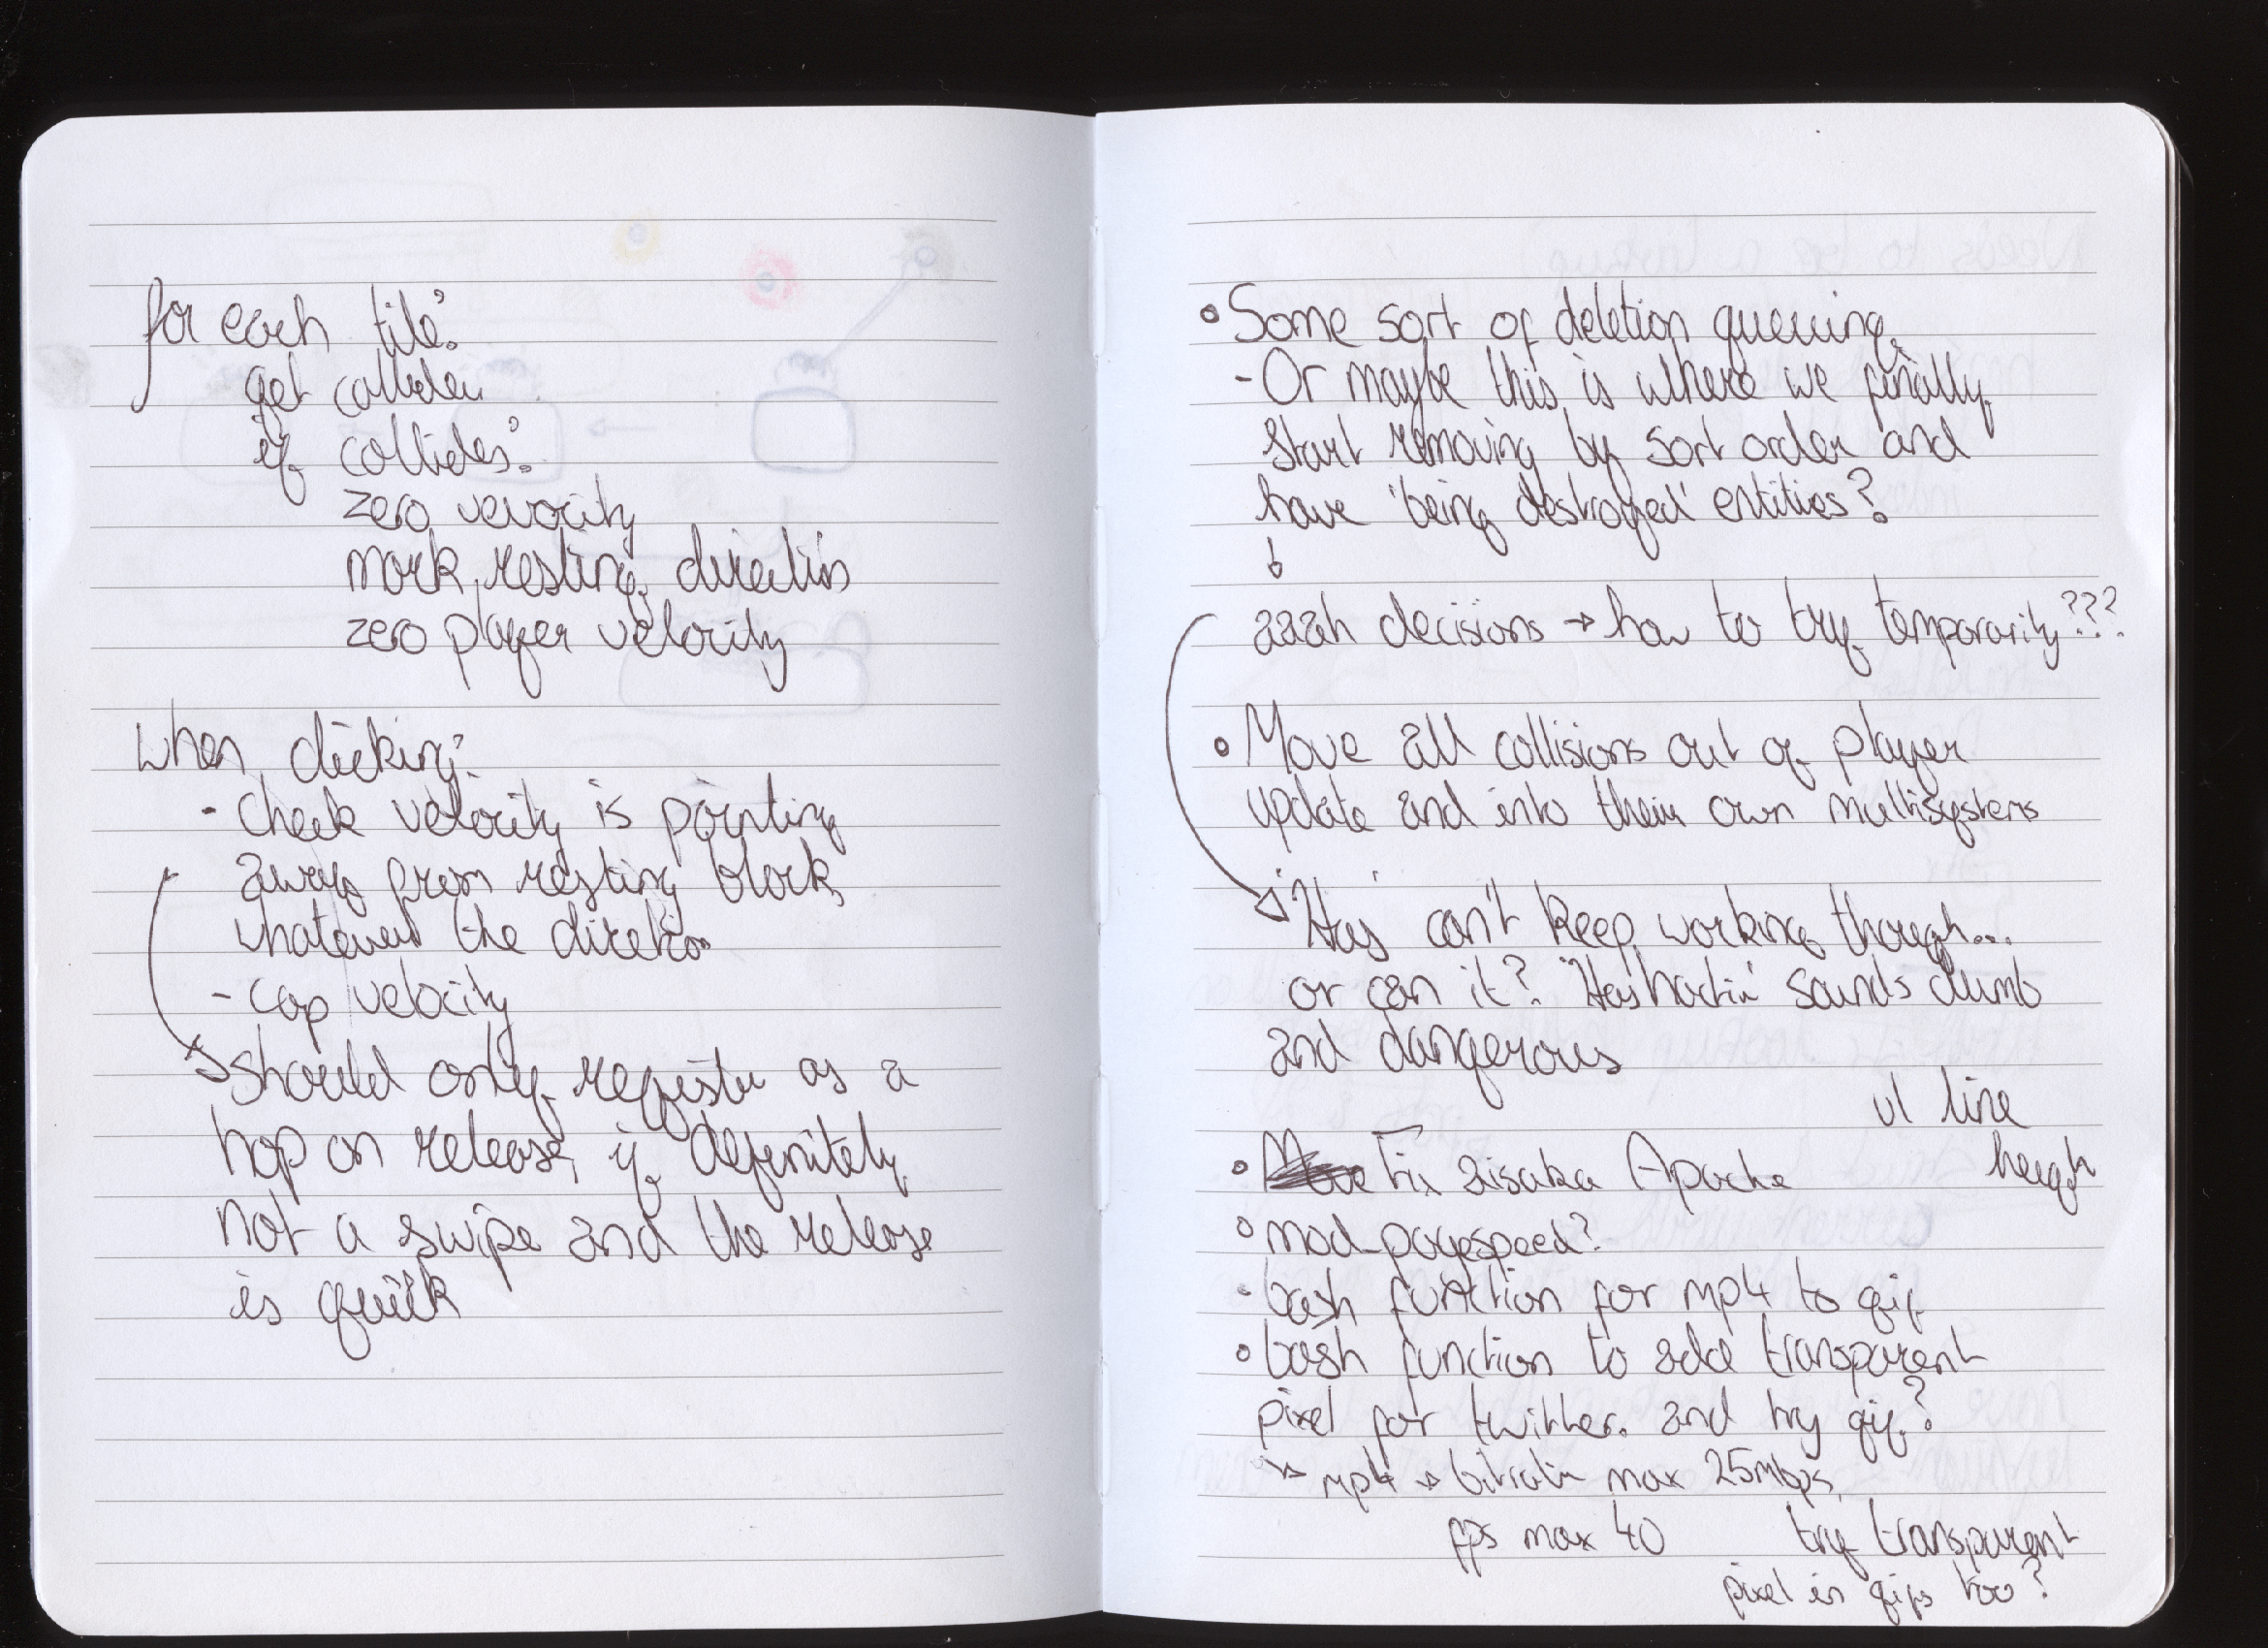 for each tile:
get collider
if collides:
zero velocity
mark resting direction
zero player velocity
when clicking:
- check velocity is pointing
away from resting block,
whatever the direction
- cap velocity
should only register as a
hop on release, if definitely
not a swipe and the release
is quick
Some sort of deletion queuing,
- Or maybe this is where we finally
start removing by sort order and
have 'being destroyed' entities?
aaah decisions → how to try temporarily???
Move all collisions out of player
update and into their own multisystems
'Has' can't keep working though...
or can it? 'Has sounds dumb
and dangerous
ul line
height
Fix aisaka Apache
mod_pagespeed?
bash function for mp4 to gif
bash function to add transparent
pixel for twitter. and try gif?
↳ mp4 → bitrate max 25Mbps,
fps max 40
try transparent
pixel in gifs too?